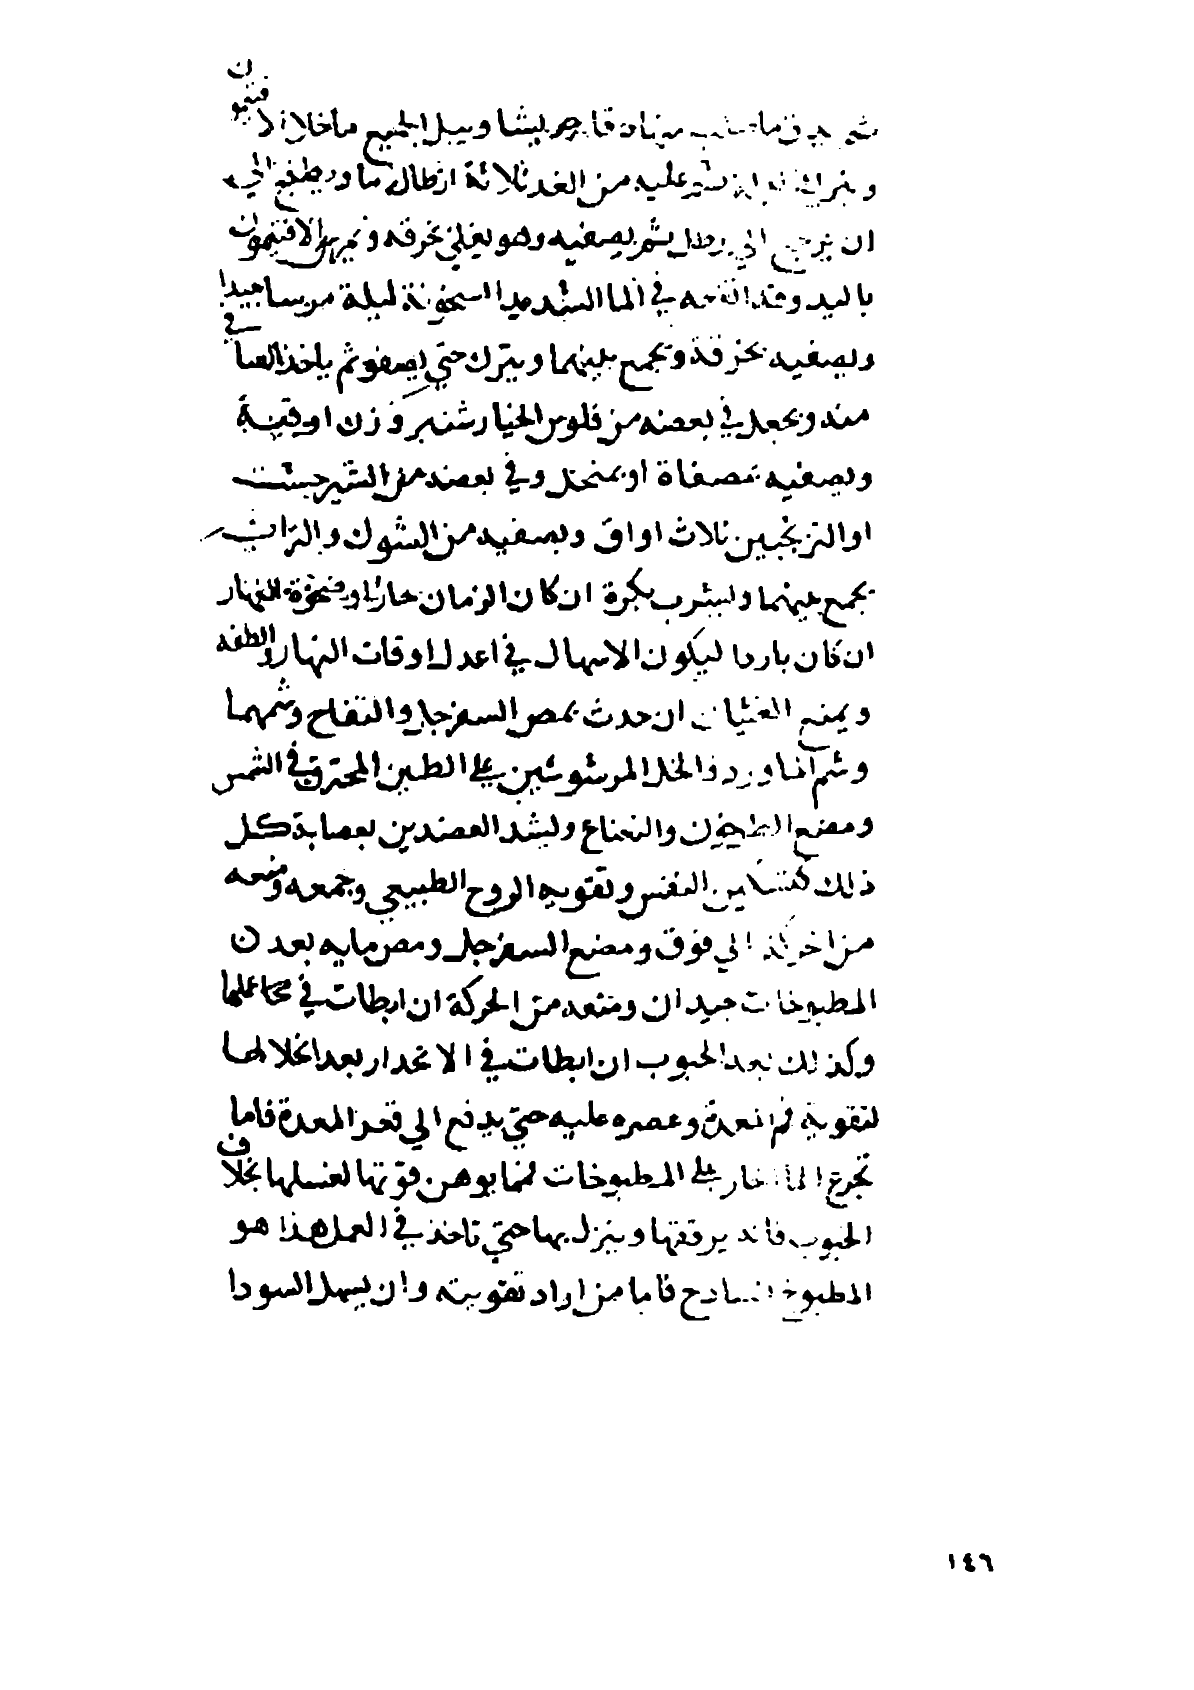 جريشا ويبل الجميع ماخلا الافتيمون
عليه من الغد ثلاثة ارطال ما ويطبخ الي
ان يرجع الي رطل ثم يصفيه وهو يغلي بخرقه ويمرس الافتيمون
باليد وقد انقعه في الما الشديد السخونة ليلة مرسا جيدا
ويصفيه بخرقة ويجمع بينهما ويترك حتي يصفو ثم ياخذ الصافي
منه ويجعل في بعضه من فلوس الخيارشنبر وزن اوقية
ويصفيه بمصفاة او بمنخل وفي بعضه من الشيرخشت
او الترنجبين ثلاث اواق ويصفيه من الشوك والتراب
يجمع بينهما ويشرب بكرة ان كان الزمان حارا وضحوة النهار
ان كان باردا ليكون الاسهال في اعدل اوقات النهار والطفه
ويمنع الغثيان ان حدث بمص السفرجل والتفاح وشمهما
وشم الماورد والخل المرشوشين علي الطين المحترق في الشمس
ومضغ الطرخون والنعناع وليشد العضدين بعصابة كل
ذلك لتسكين النفس وتقويه الروح الطبيعي وجمعه ومنعه
من الي فوق ومضغ السفرجل ومص مايه بعد
المطبوخات جيد ان ومنعه من الحركة ان ابطات في عملها
وكذلك بعد الحبوب ان ابطات في الانحدار بعد انحلالها
لتقوية فم المعدة وعصره عليه حتي يدفع الي قعر المعدة فاما
تجرع الما الحار علي المطبوخات فمما يوهن قوتها لغسلها بخلاف
الحبوب فانه يرققها وينزل بها حتي تاخذ في العمل هذا هو
المطبوخ الساذج فاما من اراد تقويته وان يسهل السودا
١٤٦